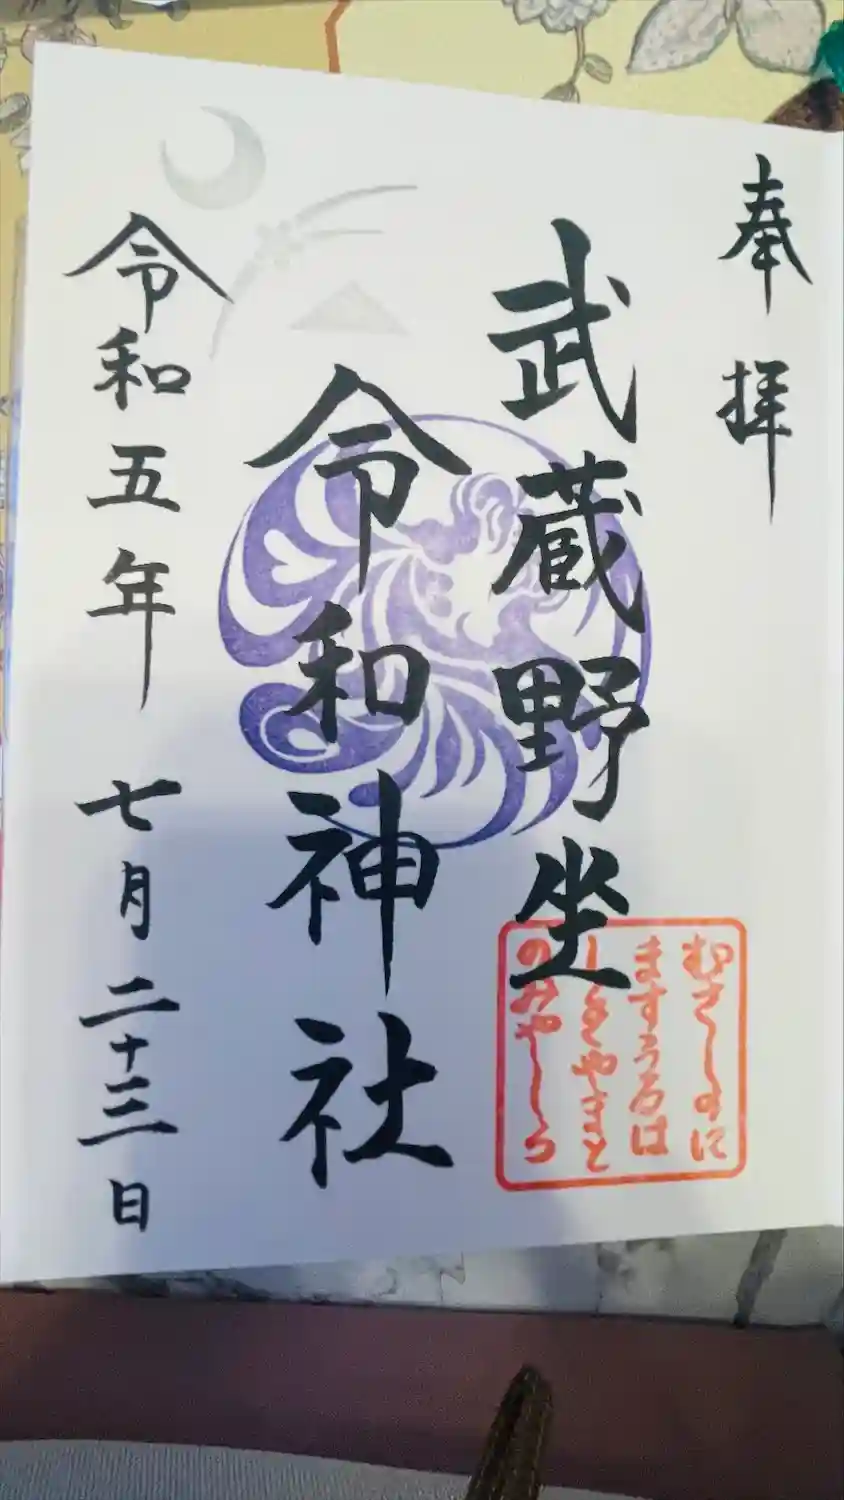 奉拝
武蔵野坐
令和神社
令和五年七月二十三日
むさしのに
ますうるは
しきやまと
のみやしろ